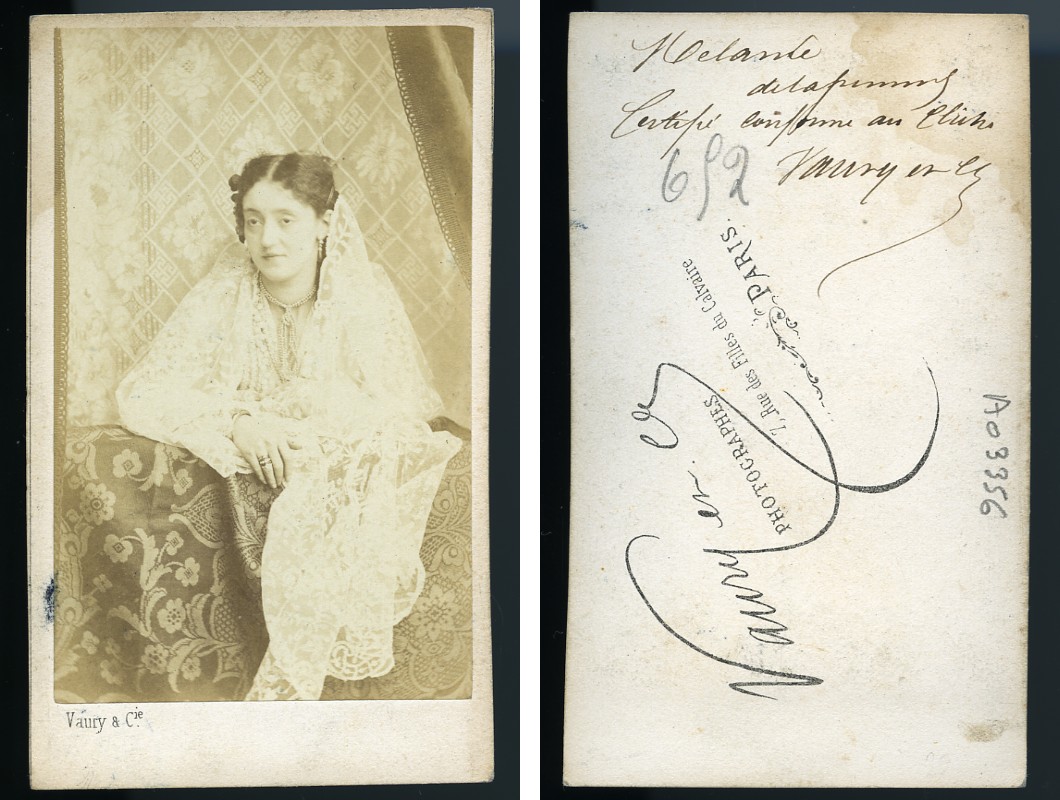 Vaury & Cie
Melanie
Certifié conforme au Cliché
Vaury et Cie
652
Vaury et Cie
PHOTOGRAPHES
7, Rue des Filles du Calvaire
PARIS.
A03356